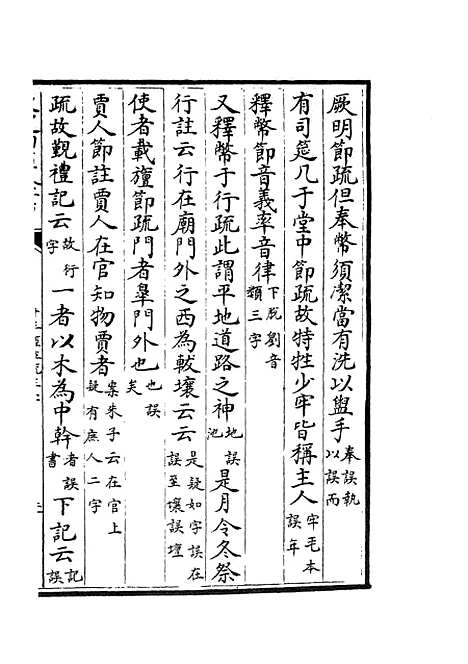 厥明節疏但奉幣須潔當有洗以盥手奉誤執以誤而
有司筵几于堂中節疏故特牲少牢皆稱主人牢毛本誤年
釋幣節音義率音律下脫劉音類三字
又釋幣于行疏此謂平地道路之神地誤池是月令冬祭
行註云行在廟門外之西為軷壤云云是疑如字誤在誤至壤誤壇
使者載旜節疏門者皋門外也也誤矣
賈人節註賈人在官知物賈者案朱子云在官上疑有庶人二字
疏故覲禮記云故行字一者以木為中幹者誤書下記云記誤